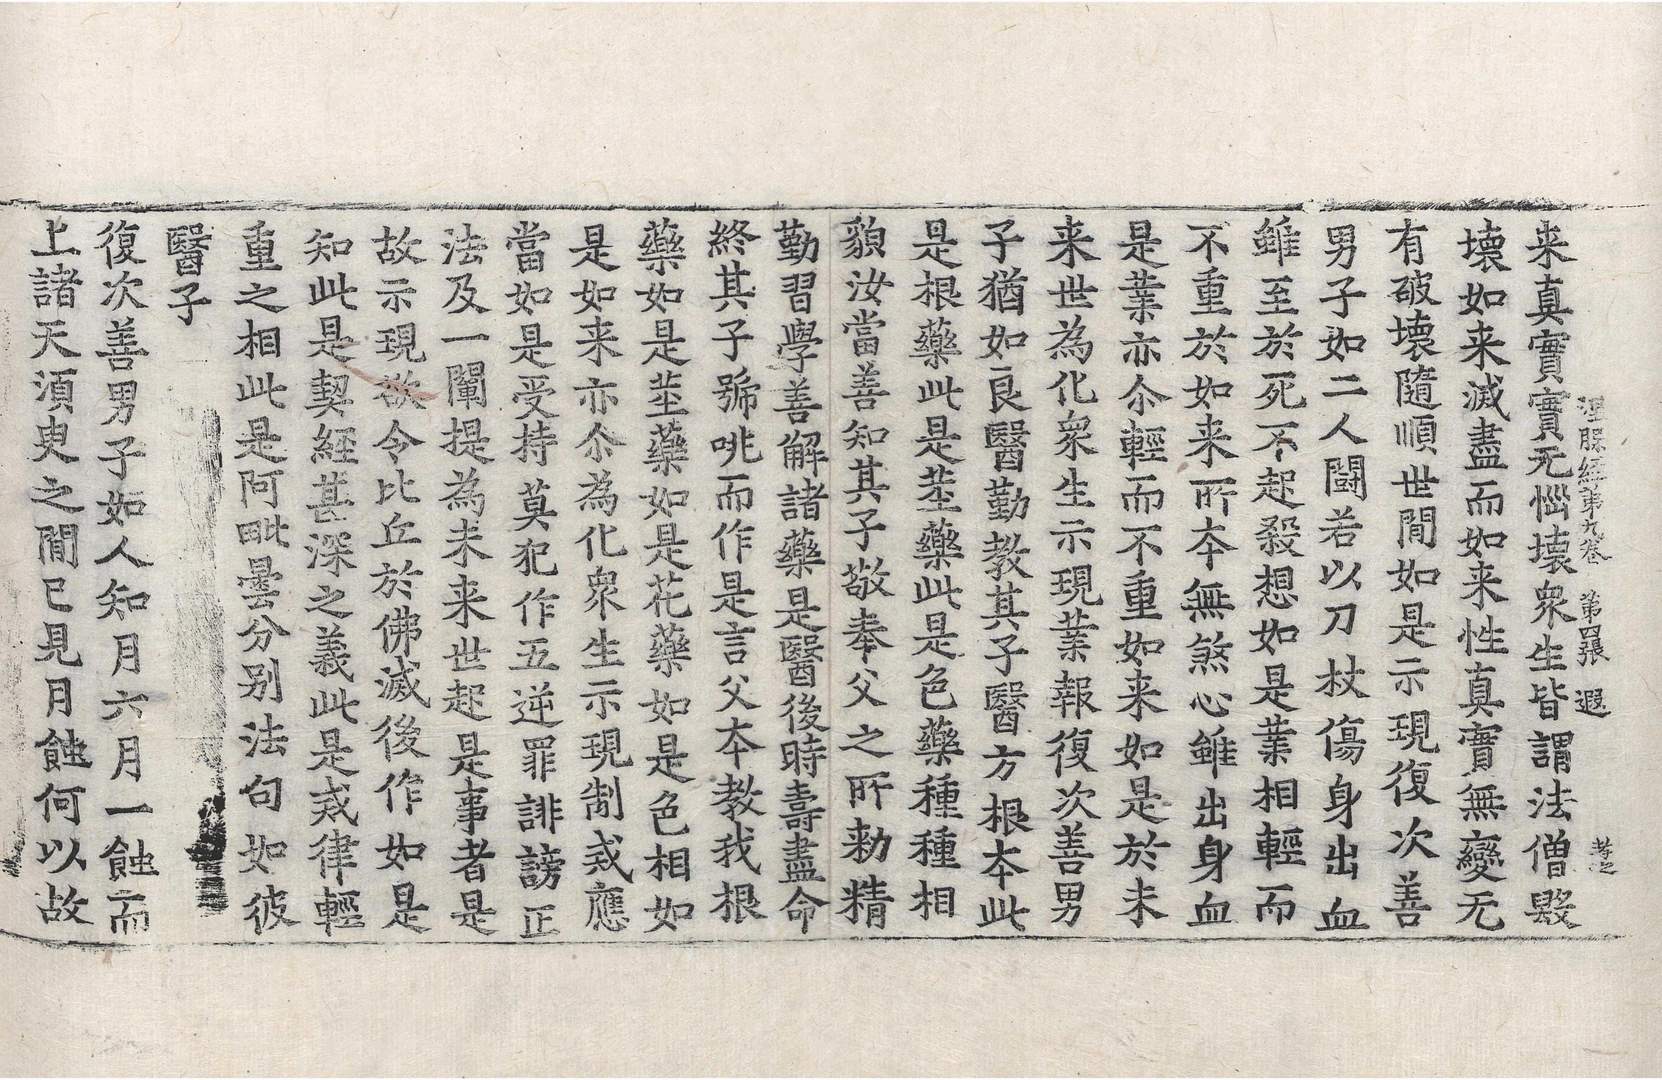 涅槃經第九卷 第四張 遐
来真實實无惱壞衆生皆謂法僧毀
壞如来滅盡而如来性真實無變无
有破壞隨順世閒如是示現復次善
男子如二人鬪若以刀杖傷身出血
雖至於死不起殺想如是業相輕而
不重於如来所夲無煞心雖出身血
是業亦尒輕而不重如来如是於未
来世為化衆生示現業報復次善男
子猶如良醫勤教其子醫方根夲此
是根藥此是莖藥此是色藥種種相
貌汝當善知其子敬奉父之所勑精
勤習學善解諸藥是醫後時壽盡命
終其子號咷而作是言父夲教我根
藥如是莖藥如是花藥如是色相如
是如来亦尒為化衆生示現制戒應
當如是受持莫犯作五逆罪誹謗正
法及一闡提為未来世起是事者是
故示現欲令比丘於佛滅後作如是
知此是契經甚深之義此是戒律輕
重之相此是阿毗曇分別法句如彼
醫子
復次善男子如人知月六月一蝕而
上諸天湏臾之閒已見月蝕何以故